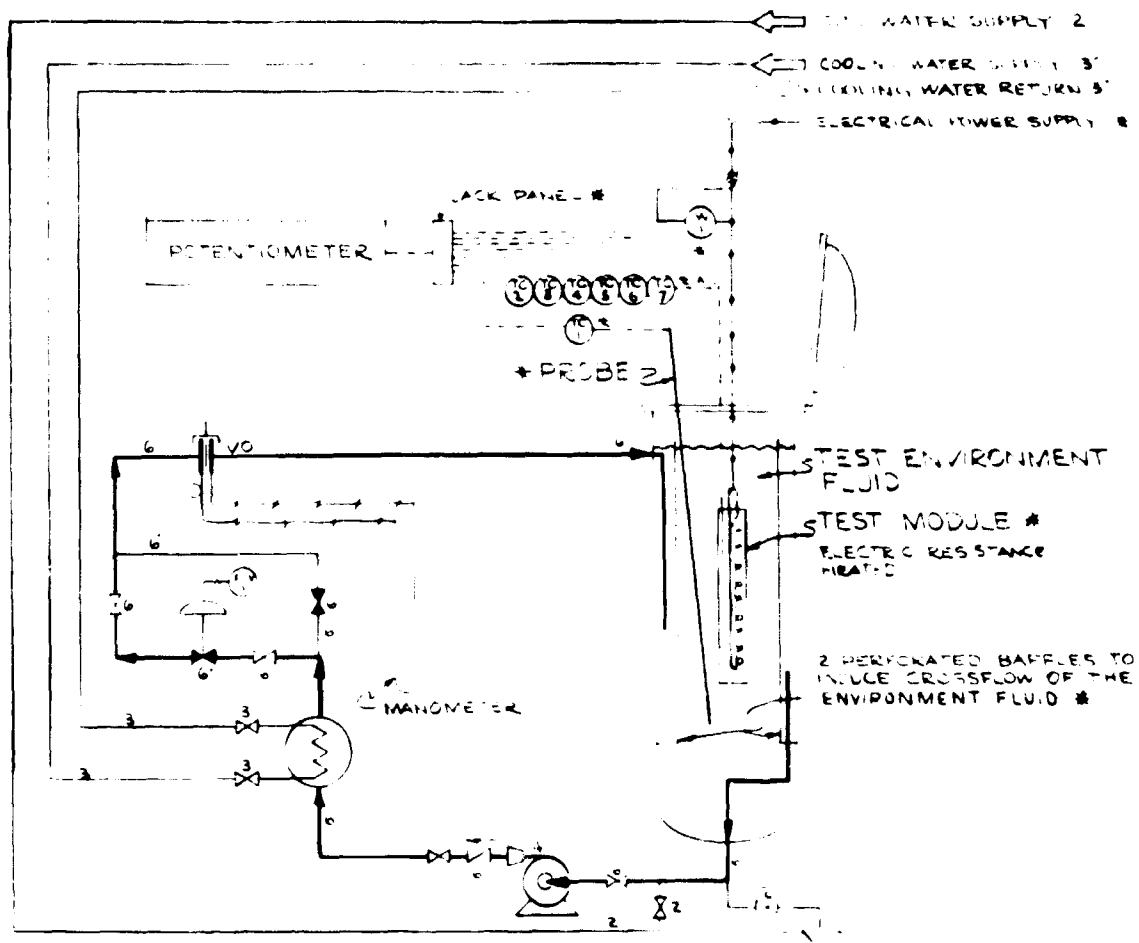 WATER SUPPLY 2
COOLING WATER SUPPLY 3"
COOLING WATER RETURN 3"
ELECTRICAL POWER SUPPLY *
JACK PANEL *
POTENTIOMETER
TC 2 TC 3 TC 4 TC 5 TC 6 TC 7
TC 1 *
* PROBE
6 VO 6
TEST ENVIRONMENT
FLUID
TEST MODULE *
ELECTRIC RESISTANCE
HEATED
6"
6 6
6
6" 6
2 PERFORATED BAFFLES TO
INDUCE CROSSFLOW OF THE
ENVIRONMENT FLUID *
MANOMETER
3 3
3 3
6
6 6
2 2